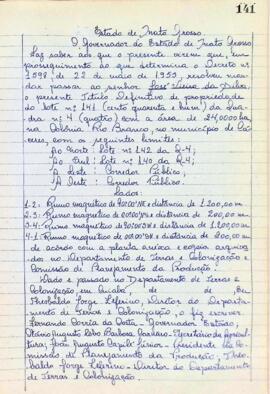 141
Estado de Mato Grosso
O Governador do Estado de Mato Grosso
Faz saber aos que o presente virem que, em
prosseguimento ao que determina o Decreto nº
1598, de 22 de maio de 1953, resolveu man
dar passar ao senhor José Vieira da Silva,
o presente Título Definitivo de propriedade
do lote nº 141 (cento quarenta e hum) da Qua
dra nº 4 (quatro) com a área de 24,0000 ha
na Colônia Rio Branco, no município de Cá
ceres, com os seguintes limites:
Ao Norte: Lote nº 142 da Q-4;
Ao Sul: Lote nº 140 da Q-4;
A Leste: Corredor Público;
A Oeste: Corredor Público;
Lados:
1-2: Rumo magnético de e distância de 1.200,00 m
2-3: Rumo magnético de e distância de 200,00 m
3-4: Rumo magnético de e distância de 1.200,00 m
4-1: Rumo magnético de e distância de 200,00 m
de acordo com a planta anexa e cópia arquiva
dos no Departamento de Terras e Colonização e
Comissão de Planejamento da Produção.
Dado e passado no Departamento de Terras e
Colonização, em Cuiabá, de de Eu,
Theobaldo Jorge Leferino, Diretor do Departa-
mento de Terras e Colonização, o fiz escrever.
Fernando Corrêa da Costa - Governador Estado;
Otávio Augusto Lobo Barbosa Cordaro - Secretário da Agricul
tura; João Augusto Capilé Júnior - Presidente da Co
missão de Planejamento da Produção; Theo
baldo Jorge Leferino - Diretor do Departamento
de Terras e Colonização.